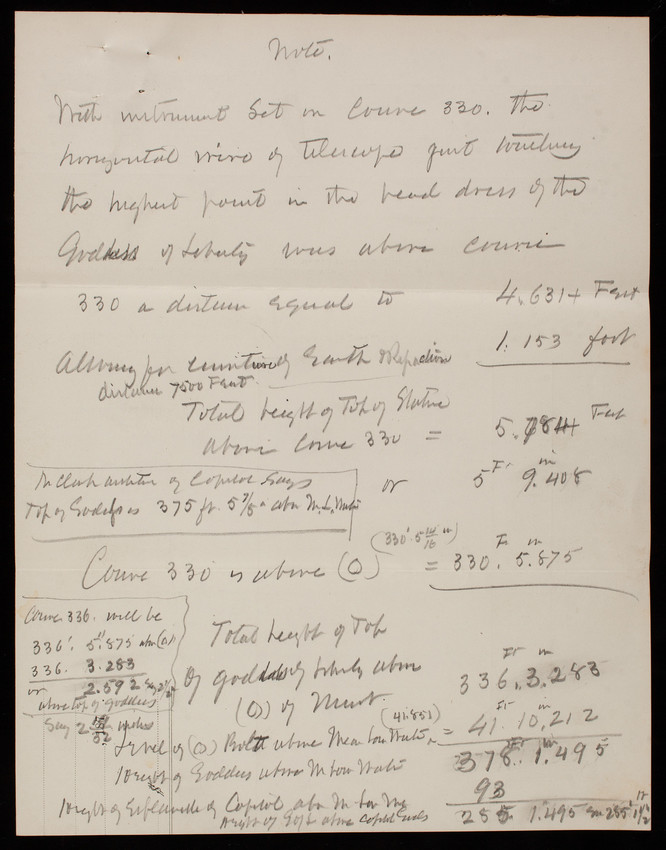 Note.
With instrument Set on Course 330. the
horizontal wire of telescope just touching
the highest point in the head dress of the
Goddess of Liberty was above course
330 a distance equal to 4.631+ Feet
Allowing for curvature of Earth & Refraction 1.153 foot
distance 7500 Feet
Total height of Top of Statue
above Course 330 = 5.784+ Feet
Mr Clark architect of Capitol Says
Top of Goddess is 375 ft. 5 7/8 in above M. L. Water
or 5 Ft 9.408 in
(330' 5 14/16 in)
Course 330 is above (O) = 330. Ft 5.875 in
Course 336. will be
336'. 5".875 above (O)
336. 3.283
or 2.592 Say 2 1/2"
above top of goddess
Say 2 inches
Total height of Top
Of goddess of Liberty above
(O) of Monut. 336. Ft 3.283 in
(41.851)
Level of (O) Bolt above Mean Low Water = 41. Ft 10.212 in
Height of Goddess above M Low Water 378. Ft 1.495 in
93
Height of Esplanade of Capitol abv M Low
Height of above Capitol 285 1.495